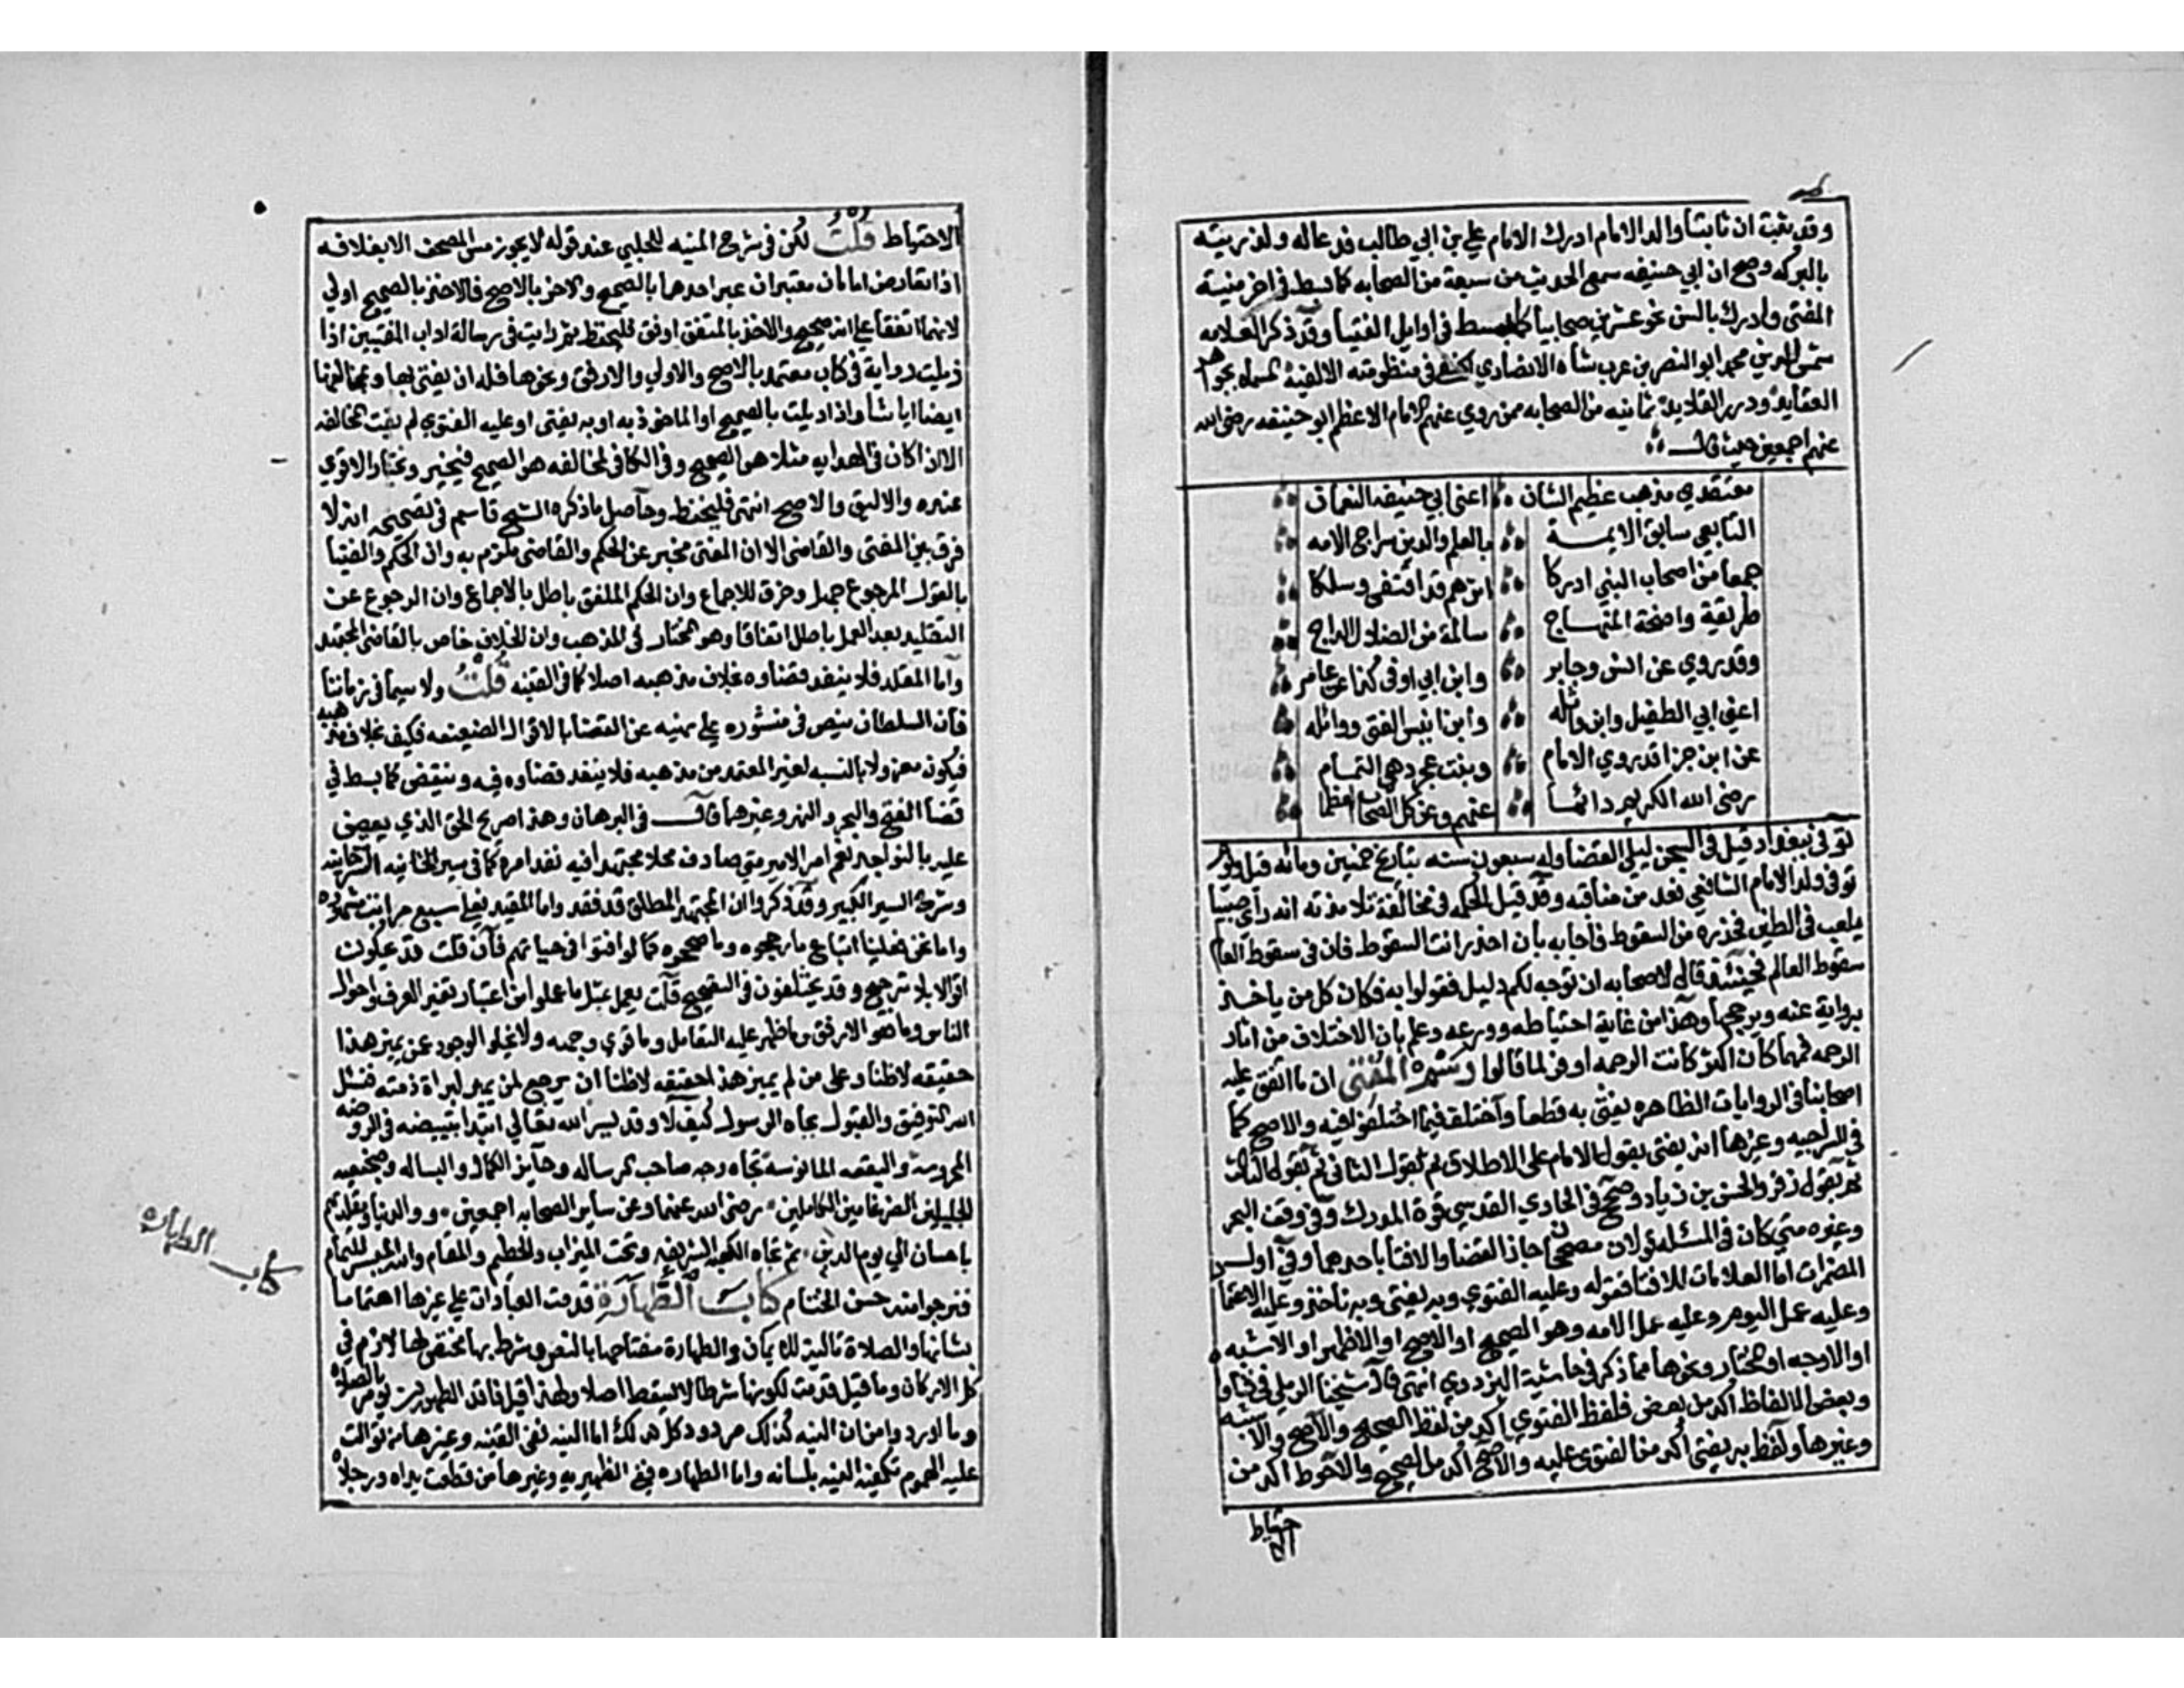 وقد ثبت ان ثابتا والد الامام ادرك الامام علي بن ابي طالب فدعا له ولذريته
بالبركه وصح ان ابي حنيفه سمع الحديث من سبعة من الصحابه كما بسط في اخر منية
المفتي وادرك بالسن نحو عشرين صحابيا كما بسط في اوايل الضيا وقد ذكر العلامه
شمس الدين محمد ابو النصر بن عرب شاه الانصاري الحنفي في منظومته الالفية المسماه بجواهر
العقايد ودرر القلايد ثمانيه من الصحابه ممن روي عنهم الامام الاعظم ابو حنيفه رضي الله
عنهم اجمعين حيث قال
معتقدي مذهب عظيم الشان اعني ابي حنيفه النعمان
التابعي سابق الايمة بالعلم والدين سراج الامه
جمعا من اصحاب النبي ادركا اثرهم قد اقتفي وسلكا
طريقة واضحة المنهاج سالمة من الضلال الداج
وقد روي عن انس وجابر وابن ابي اوفي كذا عن عامر
اعني ابي الطفيل وابن واثله وابن انيس الفتي وواثله
عن ابن جزا قد روي الامام وبنت عجرد هي التمام
رضي الله الكريم دائما عنهم وعن كل الصحاب العظما
توفي ببغداد قيل في السجن ليلي القضا وله سبعون سنه بتاريخ خمسين ومائه قيل ويوم
توفي ولد الامام الشافعي فعد من مناقبه وقد قيل الحكمه في مخالفة تلامذته انه راي صبيا
يلعب في الطين فحذره من السقوط فاجابه بان احذر انت السقوط فان في سقوط العالم
سقوط العالم فحينئذ قال لاصحابه ان توجه لكم دليل فقولوا به فكان كل من ياخذ
برواية عنه ويرجحها وهذا من غاية احتياطه وورعه وعلم بان الاختلاف من اثار
الرحمه فمهما كان اكثر كانت الرحمه اوفر لما قالوا رسم المفتي ان ما اتفق عليه
اصحابنا في الروايات الظاهره يفتي به قطعا واختلف فيما اختلفوا فيه والاصح كما
في السراجيه وغيرها انه يفتي بقول الامام علي الاطلاق ثم بقول الثاني ثم بقول الثالث
ثم بقول زفر والحسن بن زياد وصحح في الحاوي القدسي قوة المدرك وفي وقف البحر
وغيره متي كان في المسئله قولان مصححان جاز القضا والافتا باحدهما وفي اول
المضمرات اما العلامات للافتا فقوله وعليه الفتوي وبه يفتي وبه ناخذ وعليه الاعتماد
وعليه عمل اليوم وعليه عمل الامه وهو الصحيح او الاصح او الاظهر او الاشبه
او الاوجه او المختار ونحوها مما ذكر في حاشية البزدوي انتهي قال شيخنا الرملي في فتاواه
وبعض الالفاظ اكد من بعض فلفظ الفتوي اكد من لفظ الصحيح والاصح والاشبه
وغيرها ولفظ به يفتي اكد من الفتوي عليه والاصح اكد من الصحيح والاحوط اكد من
الاحتياط
الاحتياط قلت لكن في شرح المنيه للحلبي عند قوله لا يجوز مس المصحف الا بغلافه
اذا تعارض امامان معتبران عبر احدهما بالصحيح والاخر بالاصح فالاخذ بالصحيح اولي
لانهما اتفقا علي انه صحيح والاخذ بالمتفق اوفق فليحفظ ثم رايت في رسالة اداب المفتيين اذا
ذيلت رواية في كتاب معتمد بالاصح والاولي والاوفق ونحوها فله ان يفتي بها وبمخالفها
ايضا ايا شا واذا ذيلت بالصحيح او الماخوذ به او به يفتي او عليه الفتوي لم يفت بمخالفه
الا اذا كان في الهدايه مثلا هو الصحيح وفي الكافي بمخالفه هو الصحيح فيخير ويختار الاقوي
عنده والاليق والاصح انتهي فليحفظ وحاصل ما ذكره الشيخ قاسم في تصحيحه انه لا
فرق بين المفتي والقاضي الا ان المفتي مخبر عن الحكم والقاضي ملزم به وان الحكم والفتيا
بالقول المرجوع جهل وخرق للاجماع وان الحكم الملفق باطل بالاجماع وان الرجوع عن
التقليد بعد العمل باطل اتفاقا وهو المختار في المذهب وان الخلاف خاص بالقاضي المجتهد
واما المقلد فلا ينفد قضاوه بخلاف مذهبه اصلا كما في القنيه قلت ولا سيما في زماننا
فان السلطان ينص في منشوره علي نهيه عن القضا بالاقوال الضعيفه فكيف بخلاف مذهبه
فيكون معزولا بالنسبه لغير المعتمد من مذهبه فلا ينفد قضاوه فيه وينقض كما بسط في
قضا الفتح والبحر والنهر وغيرها قال في البرهان وهذا صريح الحق الذي يعض
عليه بالنواجد نعم امر الامير متي صادف محلا مجتهدا فيه نفد امره كما في سير التاتارخانيه
وشرح السير الكبير وقد ذكروا ان المجتهد المطلق قد فقد واما المقيد فعلي سبع مراتب مشهوره
واما نحن فعلينا اتباع ما رجحوه وما صححوه كما لو افتوا في حياتهم فان قلت قد يحكون
اقوالا بلا ترجيح وقد يختلفون في التصحيح قلت يعمل بمثل ما عملوا من اعتبار تغير العرف واحوال
الناس وما هو الارفق وما ظهر عليه التعامل وما قوي وجهه ولا يخلو الوجود عن يميز هذا
حقيقه لا ظنا وعلي من لم يميز هذا حقيقه لا ظنا ان يرجع لمن يميز لبراة ذمته فنسئل
الله التوفيق والقبول بجاه الرسول كيف لا وقد يسر الله تعالي ابتدا تبييضه في الروضه
المحروسه والبقعه المانوسة تجاه وجه صاحب الرساله وحايز الكمال والبساله وضجيعيه
الجليلين الضرغامين الكاملين رضي الله عنهما وعن ساير الصحابه اجمعين ووالدينا ومقلديهم
باحسان الي يوم الدين ثم تجاه الكعبه الشريفه وتحت الميزاب والحطيم والمقام والله الميسر للتمام
فنرجو منه حسن الختام كتاب الطهارة قدمت العبادات علي غيرها اهتماما
بشانها والصلاة تالية للايمان والطهارة مفتاحها بالنص وشرط بها مختص لها لازم في
كل الاركان وما قيل قدمت لكونها شرطا لا يسقط اصلا ولهذا قيل فاقد الطهورين يومر بالصلاة
وما اورد وا من ان النيه كذلك مردود كل ذلك اما النيه ففي القنيه وغيرها من توالت
عليه الهموم تكفيه النيه بلسانه واما الطهاره ففي الظهيريه وغيرها من قطعت يداه ورجلاه
كتاب الطهاره